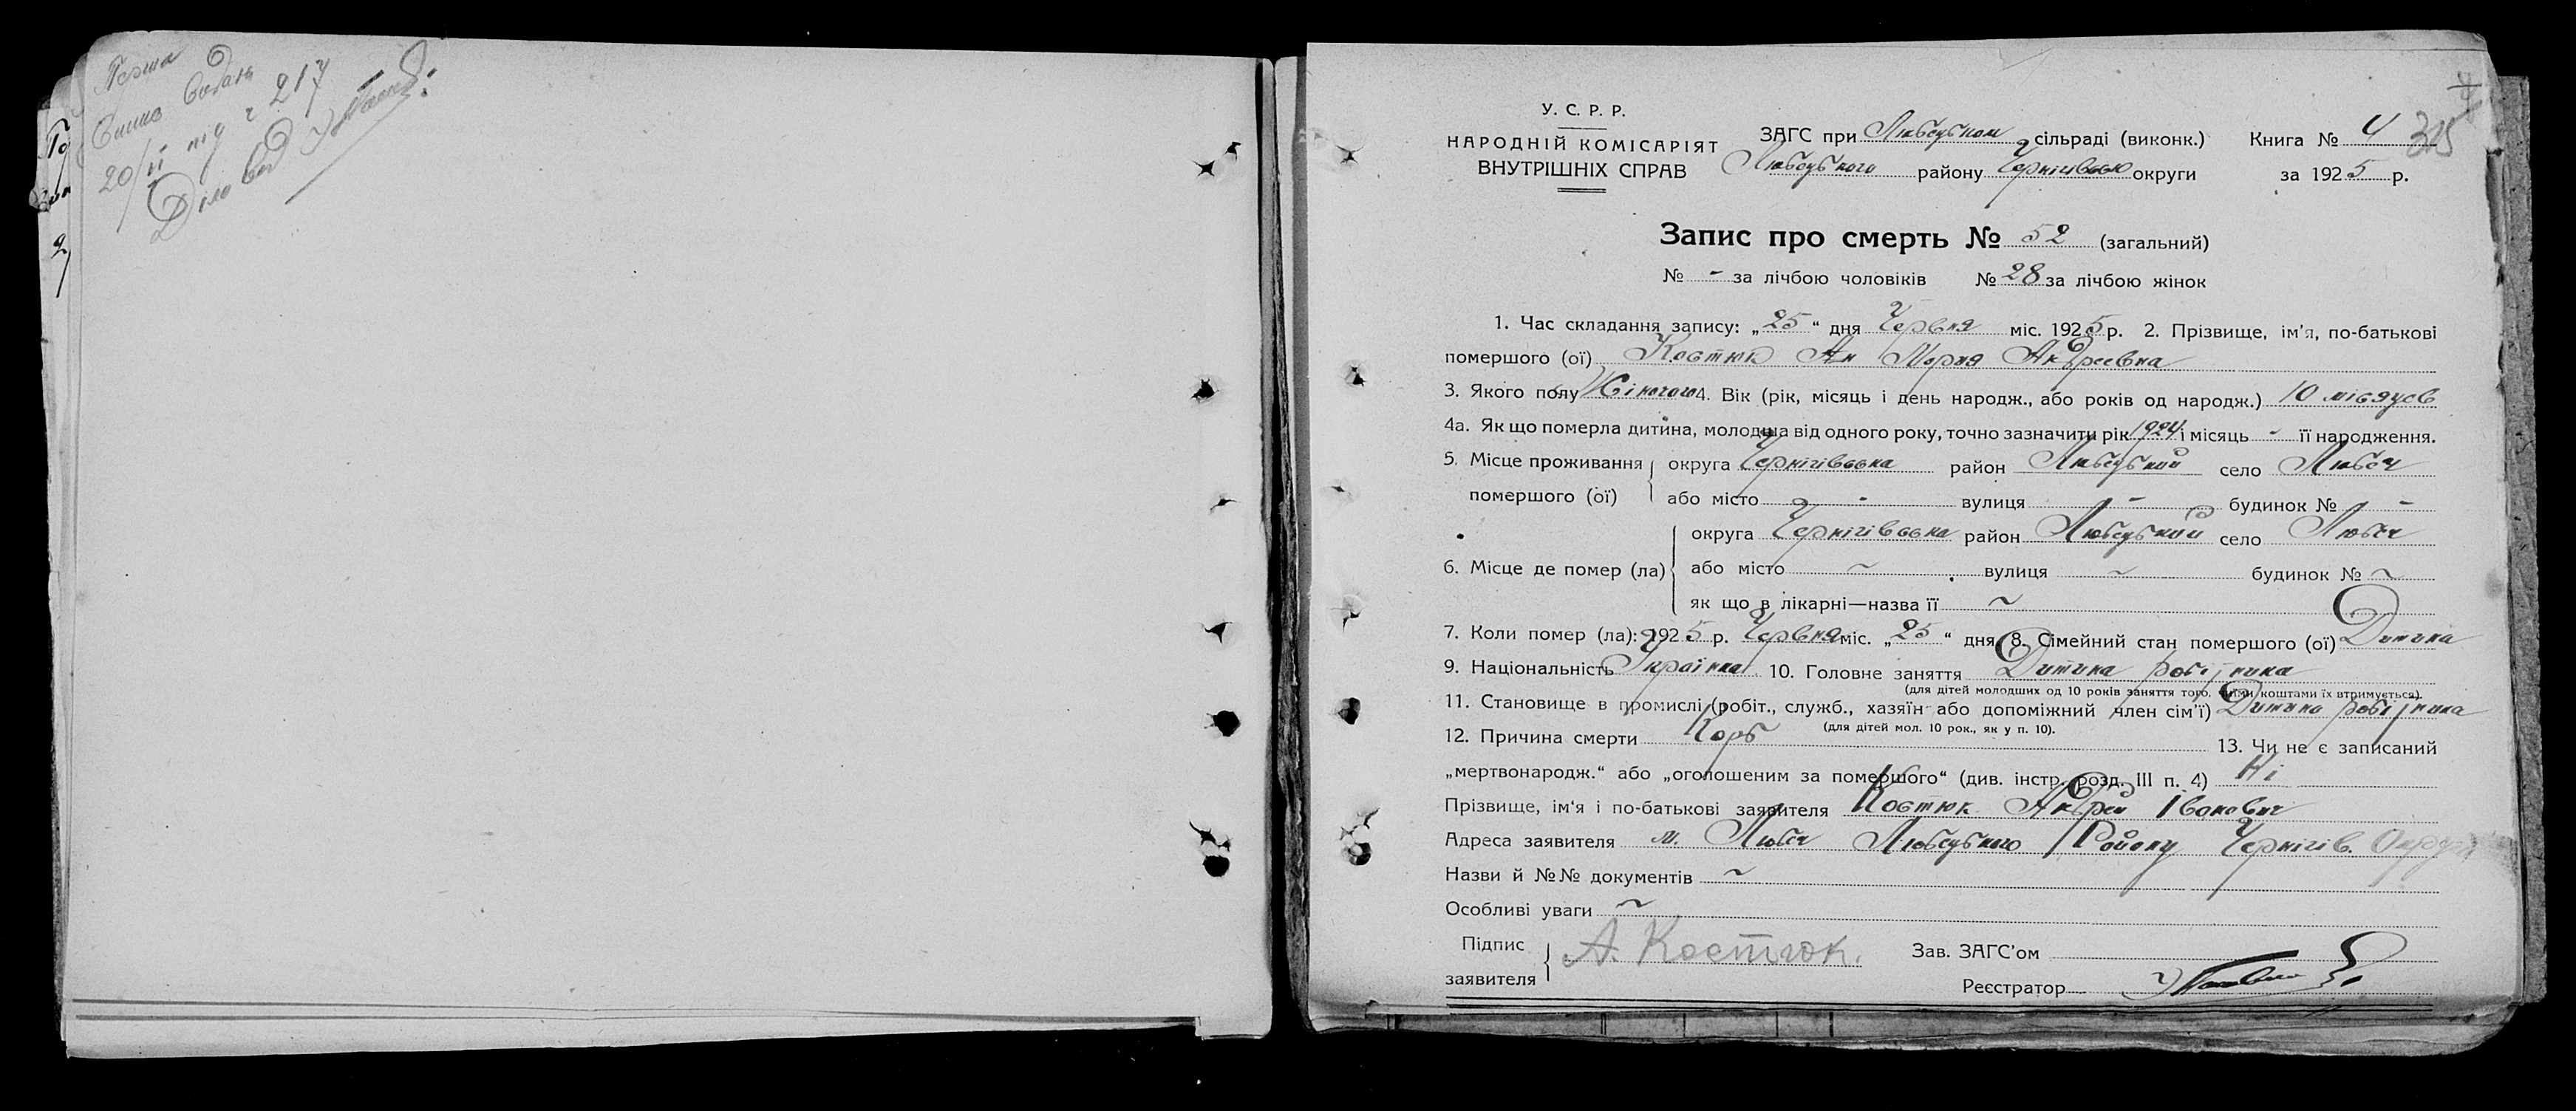 Перша
20/II під ч 217
Діловод
У. С. Р. Р.
НАРОДНІЙ КОМІСАРІЯТ
ВНУТРІШНІХ СПРАВ
ЗАГС при Любецьком сільраді (виконк.)
Любецького району Чернігівсько округи
Книга № 4 305
за 1925 р.
Запис про смерть № 52 (загальний)
№ - за лічбою чоловіків № 28 за лічбою жінок
1. Час складання запису: „25“ дня Червня міс. 1925 р. 2. Прізвище, ім’я, по-батькові
помершого (ої) Костюк Ан Мория Андреевна
3. Якого полу Жіночого 4. Вік (рік, місяць і день народж., або років од народж.) 10 місяцев
4а. Як що померла дитина, молодша від одного року, точно зазначити рік 1924 і місяць - її народження.
5. Місце проживання помершого (ої) округа Чернігівська район Любецький село Любеч
або місто - вулиця - будинок № -
6. Місце де помер (ла) округа Чернігівська район Любецький село Любеч
або місто ~ вулиця ~ будинок № ~
як що в лікарні—назва її ~
7. Коли помер (ла): 1925 р. Червня міс. „25“ дня 8. Сімейний стан помершого (ої) Дитина
9. Національність Українка 10. Головне заняття Дитина робітника
(для дітей молодших од 10 років заняття того, чиїми коштами їх втримується).
11. Становище в промислі (робіт., служб., хазяїн або допоміжний член сім’ї) Дитина робітника
(для дітей мол. 10 рок., як у п. 10).
12. Причина смерти Корь 13. Чи не є записаний
„мертвонародж.“ або „оголошеним за помершого“ (див. інстр. розд. III п. 4) Ні
Прізвище, ім’я і по-батькові заявителя Костюк Андрей Іванович
Адреса заявителя м. Любеч Любецького Району Чернігів. Округи
Назви й №№ документів ~
Особливі уваги ~
Підпис заявителя А. Костюк.
Зав. ЗАГС’ом
Реєстратор